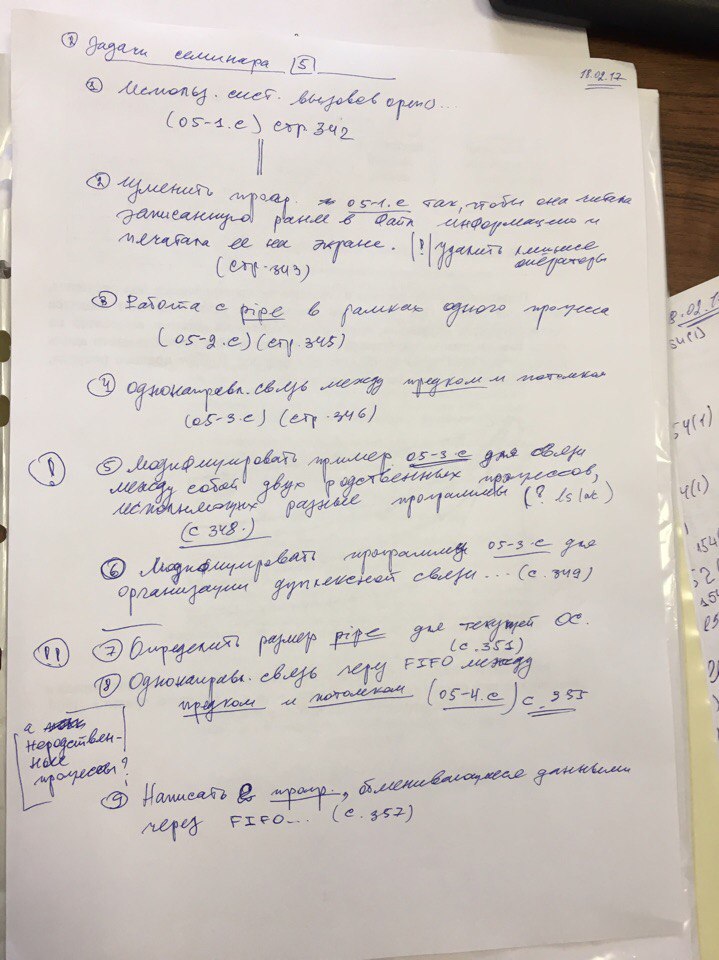 ① Задачи семинара 5
18.02.17
① Использ. сист. вызовов open()...
(05-1.c) стр.342
② Изменить прогр. 05-1.c так, чтобы она читала
записанную ранее в файл информацию и
печатала ее на экране. (!) удалить лишние
операторы
(стр.343)
③ Работа с pipe в рамках одного процесса
(05-2.c) (стр.345)
④ однонаправл. связь между предком и потомком
(05-3.c) (стр.346)
⑤ Модифицировать пример 05-3.c для связи
между собой двух родственных процессов,
исполняющих разные программы (?
(с 348.)
⑥ Модифицировать программу 05-3.c для
организации дуплексной связи... (с.349)
⑦ Определить размер pipe для текущей ОС.
(с.351)
⑧ Однонаправл. связь через FIFO между
предком и потомком (05-4.c) с.355
а
неродствен-
ные
процессы?
⑨ Написать 2 прогр., обменивающиеся данными
через FIFO... (с.357)
8.02.1
54(1)
54(1)
4(1)